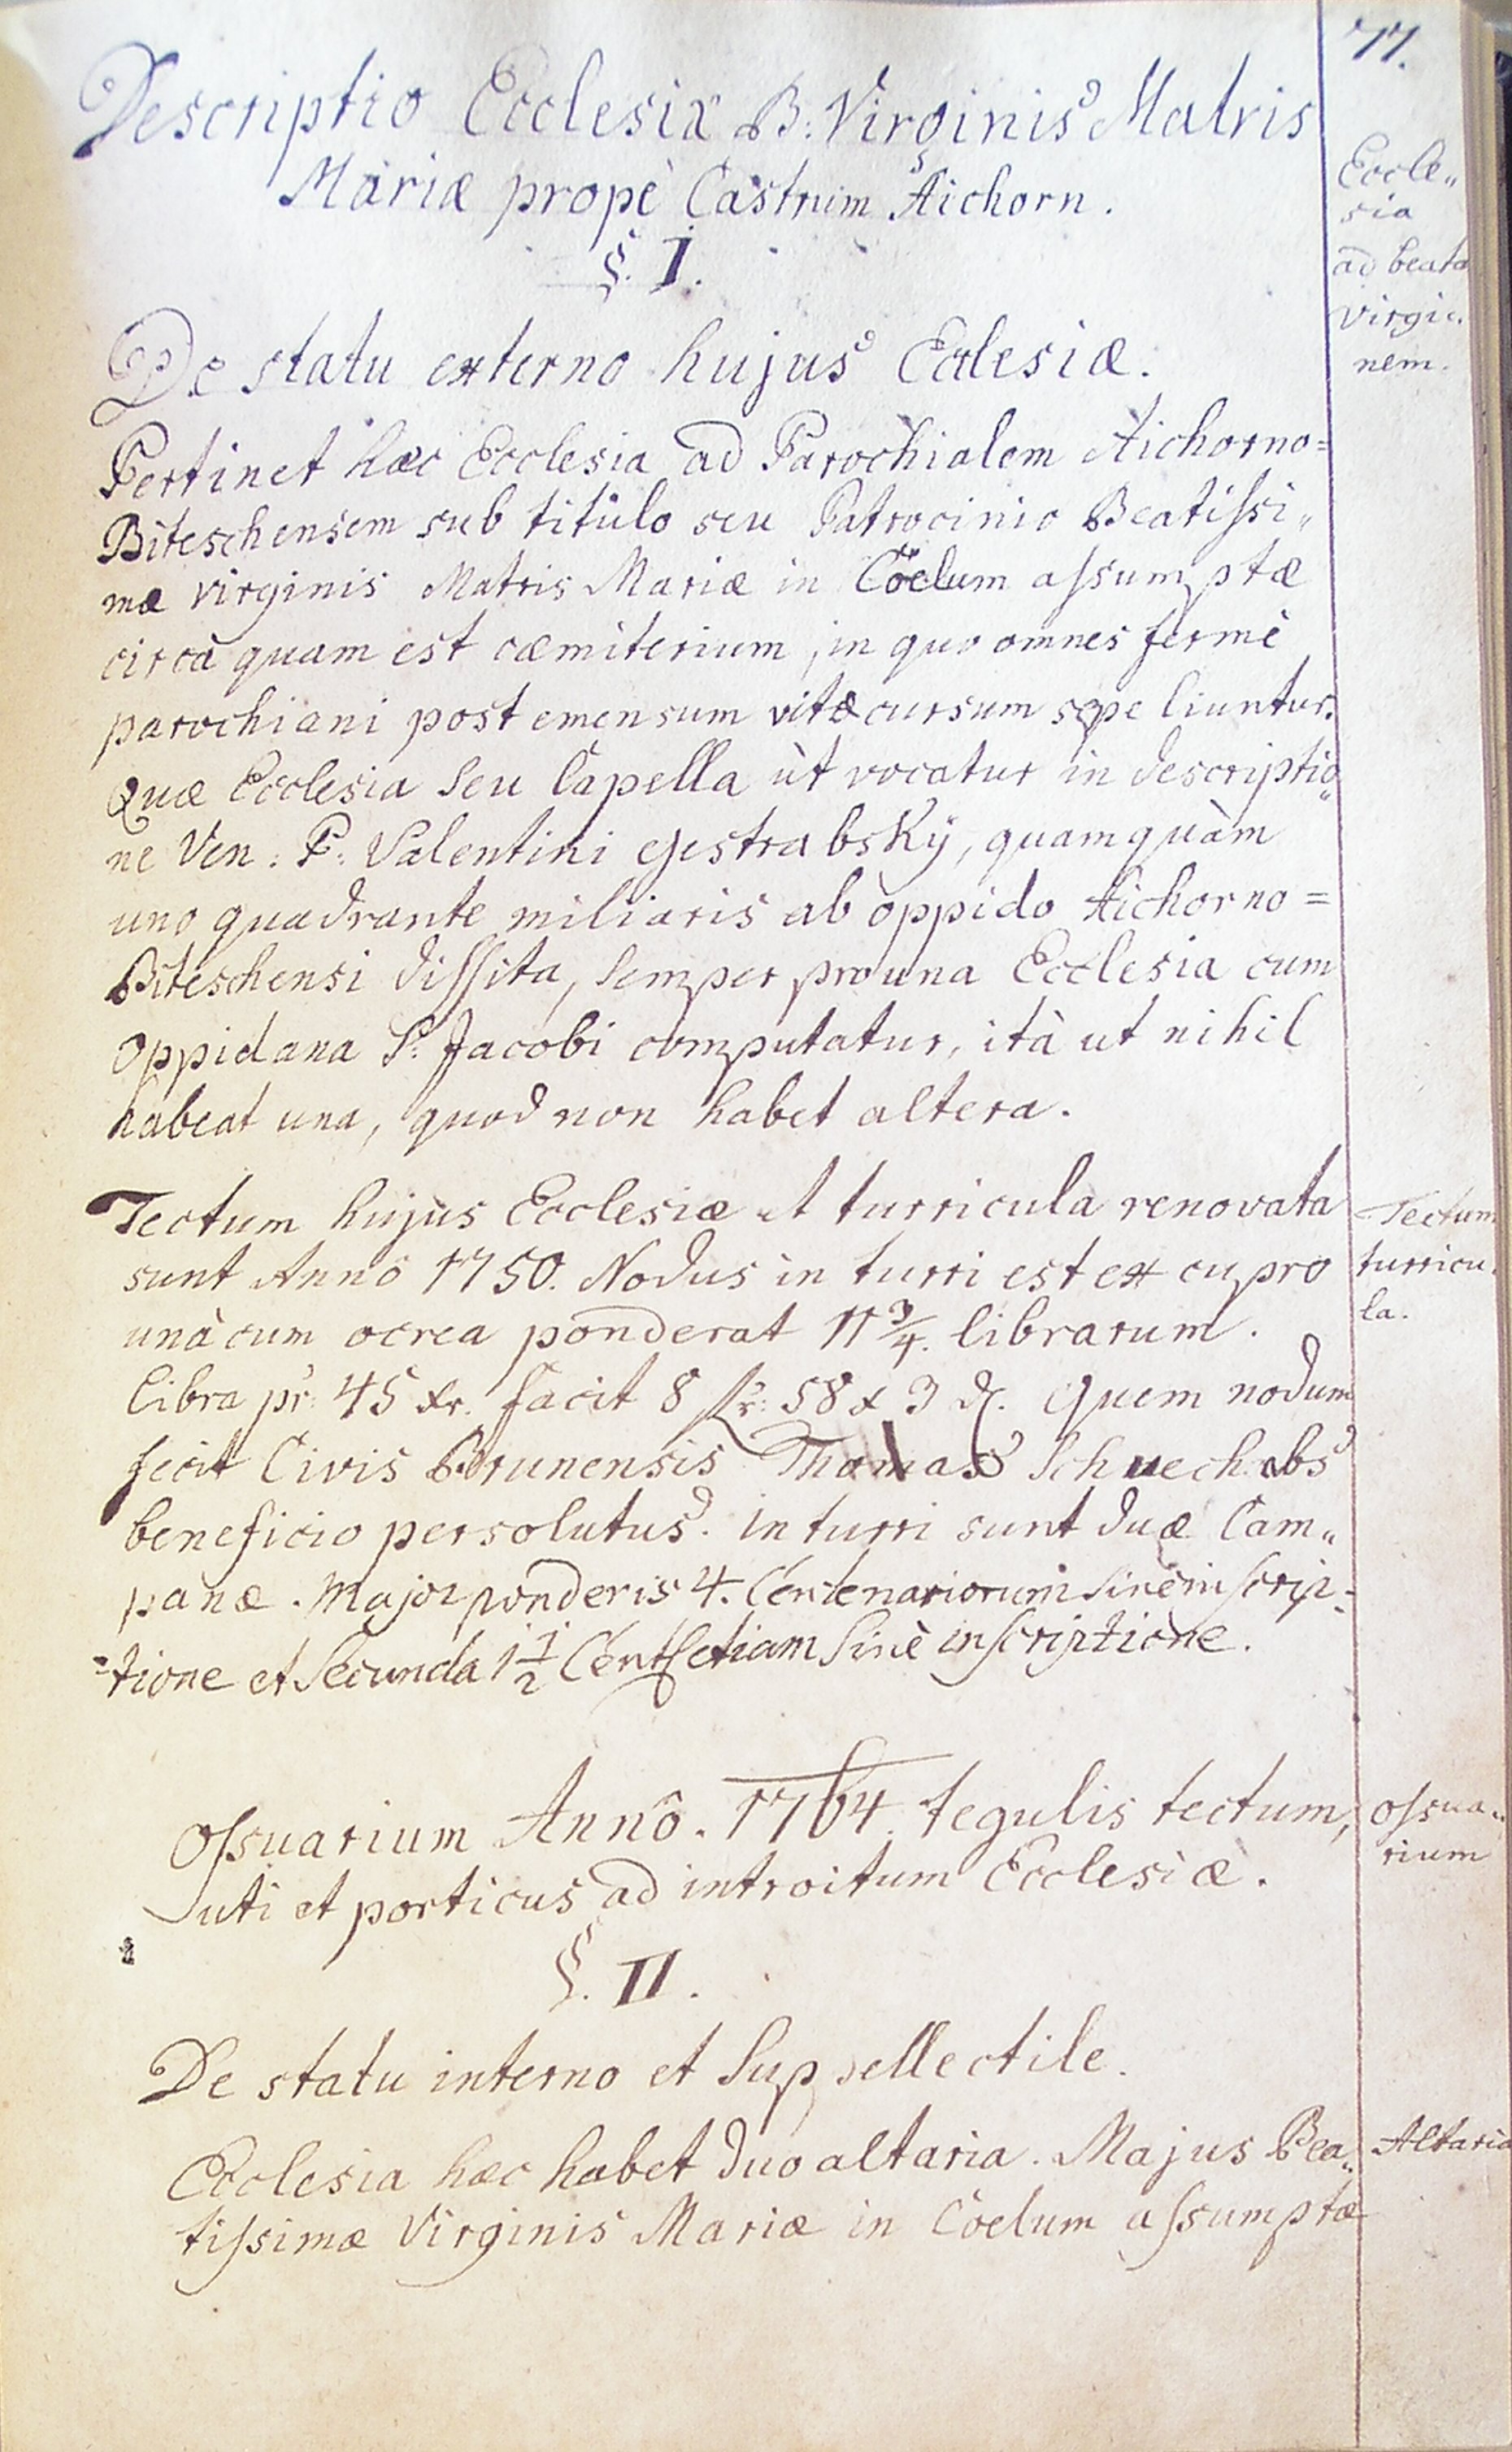 77.
Descriptio Ecclesiæ B: Virginis Matris
Mariæ propè Castrum Aichorn.
Eccle„
sia
ad beata
virgi„
nem.
§. I.
De statu externo hujus Ecclesiæ.
Pertinet hæc Ecclesia ad Parochialem Aichorno=
Biteschensem sub titulo seu Patrocinio Beatiſsi„
mæ virginis Matris Mariæ in Cœlum aſsumptæ
circà quam est cæmiterium, in quo omnes fermè
parochiani post emensum vitæ cursum sepeliuntur.
Quæ Ecclesia seu Capella ùt vocatur in descriptio„
ne Ven: P: Valentini Gestrabskÿ, quamquàm
uno quadrante miliaris ab oppido Aichorno=
Biteschensi diſsita, semper pro una Ecclesia cum
oppidana S: Jacobi computatur, ità ut nihil
habeat una, quod non habet altera.
Tectum hujus Ecclesiæ et turricula renovata
sunt Annô 1750. Nodus in turri est ex cupro
unà cum ocrea ponderat 11 3/4. librarum.
libra pr: 45 xr. facit 8 fr: 58 x 3 d. Quem nodum
fecit Civis Brunensis Thomas
beneficio persolutus. in turri sunt duæ Cam„
panæ. Major ponderis 4. Centenariorum sinè inscrip=
=tione et secunda 1 1/2 Cent etiam sinè inscriptione.
Tectum
turricu„
la.
Oſsuarium Annô. 1764. tegulis tectum,
uti et porticus ad introitum Ecclesiæ.
Oſsua„
rium
§. II.
De statu interno et Suppellectile.
Ecclesia hæc habet duo altaria. Majus Bea„
tiſsimæ Virginis Mariæ in Cœlum aſsumptæ
Altaria